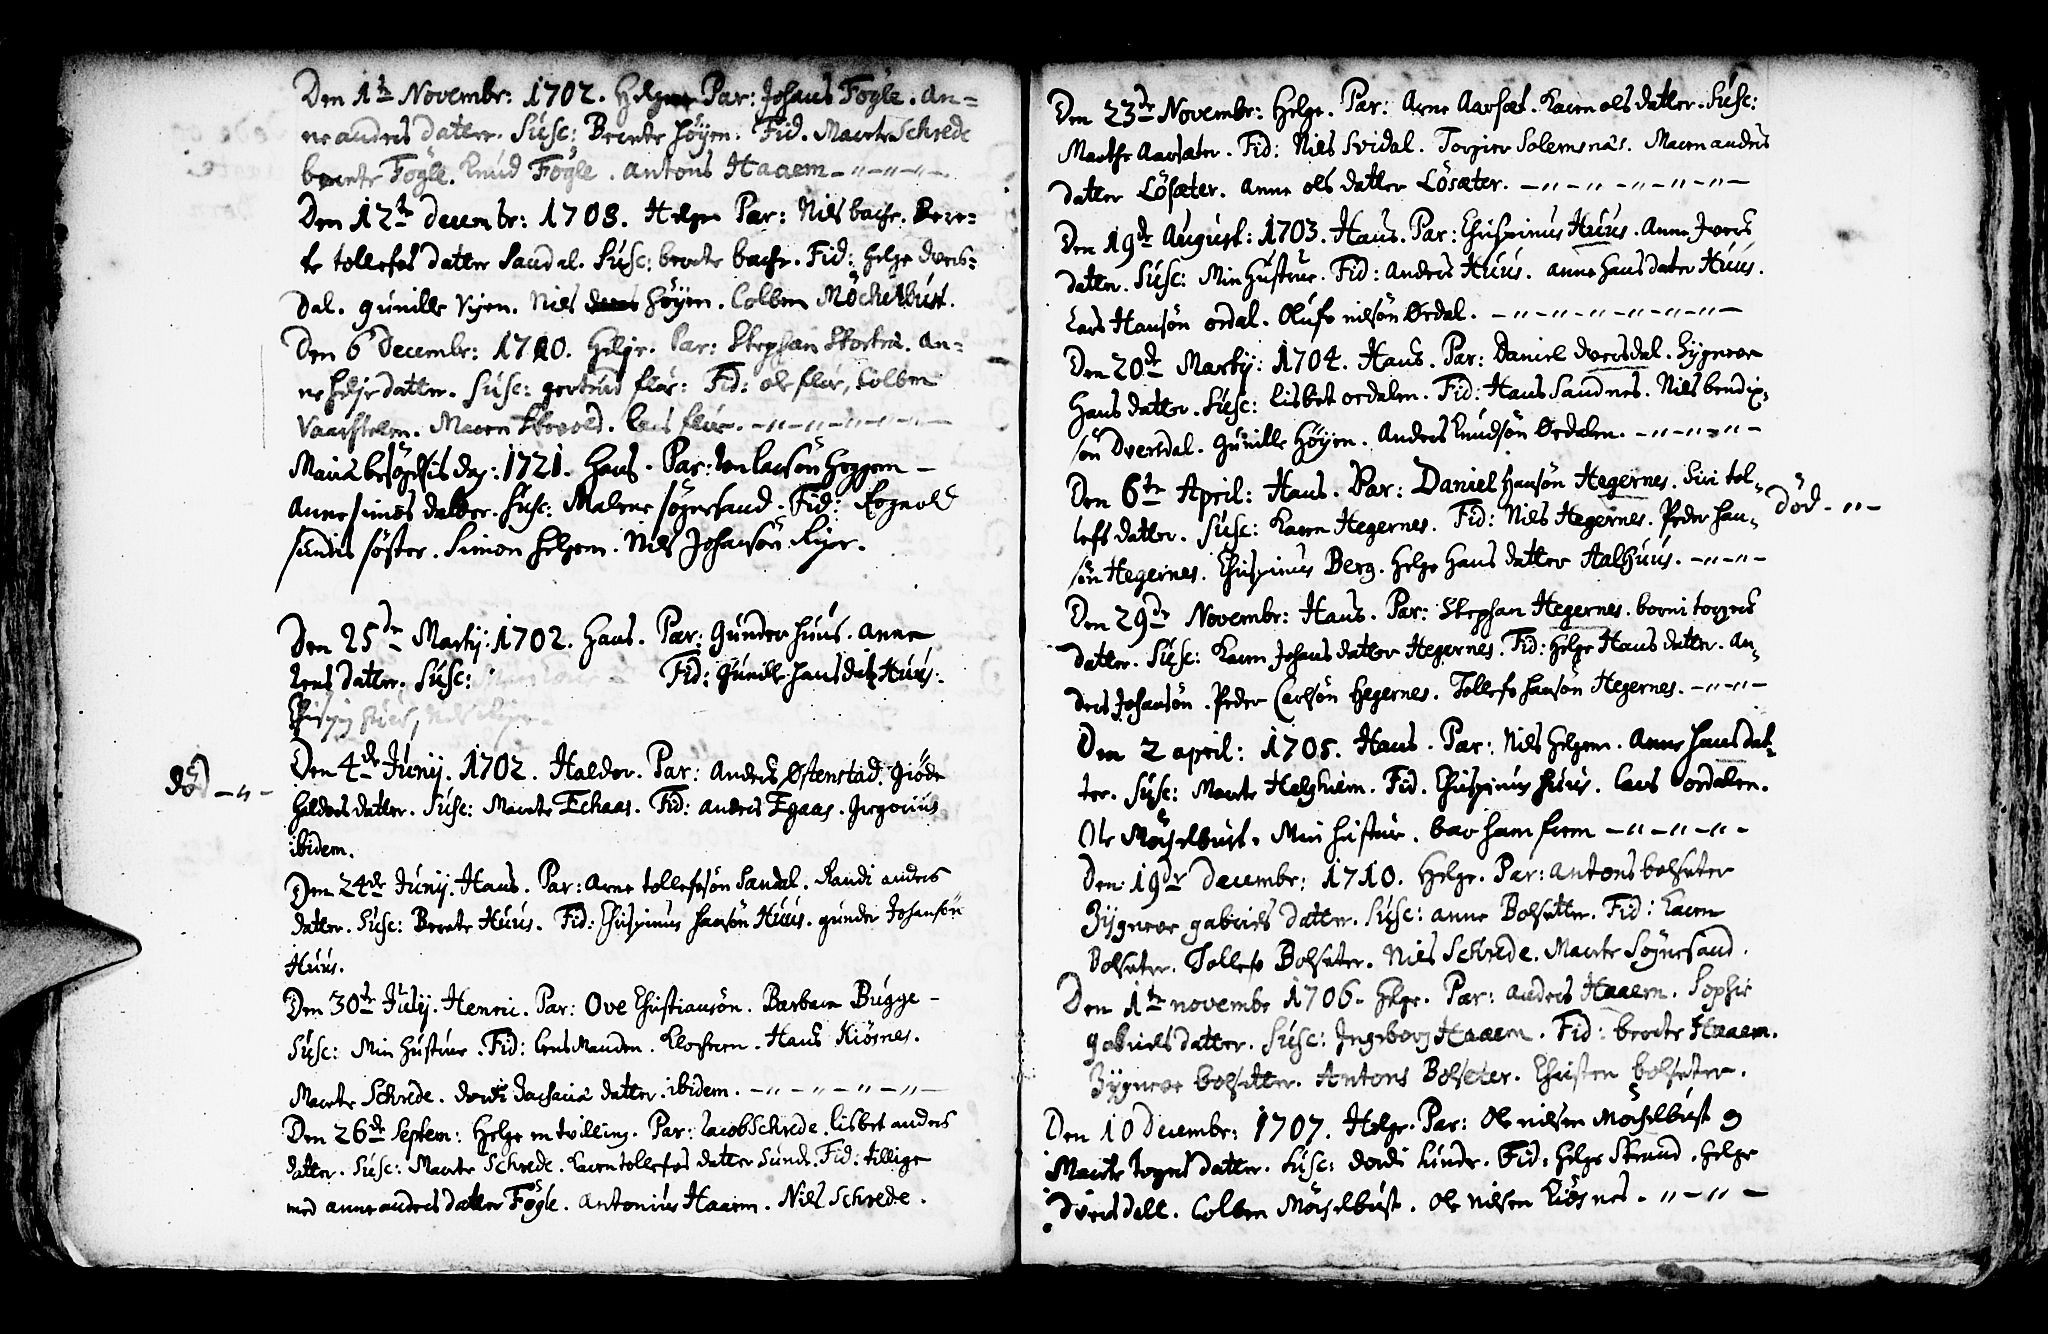 Den 1te Novembr: 1702. Helge Par: Johans Fögle. An=
ne anders datter. Susc: Berete Höyen. Fid. Marete Schrede
berete Fögle. Knud Fögle. Antons Haaem
Den 12te decembr: 1708. Helge Par: Nils bache. Bere=
te tollefs datter Sandal. Susc: berete bache. Fid: Helge dvers=
dal. gunille Nils Höyen. Colben Möckelbust.
Den 6 Decembr: 1710. Helge. Par: Stephan An=
ne Helje datter. Susc: gertrud flör: Fid: ole flör, Colben
Maren lars flör.
Maria besögelsis dag: 1721. Hans. Par: larsön Heggem
Anne simens datter. Susc: Malene sögnesand. Fid: Rognald
sunds söster. Simon Helgem. Nils Johansön
Den 25de Martij: 1702. Hans. Par: Gunder Huus. Anne
Lens datter. Susc: Fid: Gunille hans dat: Huus.
Den 4de Junij. 1702. Haldor. Par: Anders Østenstad. Giöde
Haldors datter. Susc: Marete Echaas. Fid: Anders Egaas. Gregorius
ibidem.
död
Den 24de Junij. Hans. Par: Arne tollefsön Sandal. Randi anders
datter. Susc: Berete Huus. Fid: Chrispinus hansön Huus. gunder Johansön
Huus.
Den 30te Julij. Henric. Par: Ove Christiansön. Barbara Bugge
Susc: Min Hustrue. Fid: Lensmanden. Klockeren. Hans Kiörnes.
Marete Schrede. dordi Zacharia datter. ibidem.
Den 26de Septem: Helge en tvilling. Par: Jacob Schrede. lisbet anders
datter. Susc: Marete Schrede. Karen tollefs datter Sunde. Fid: tillige
med anne anders datter Fögle. Antonius Haaem. Nils Schrede.
Den 23de Novembr: Helge. Par: Arne Aarsæt. Karen ols datter. Susc:
Marthe Aarsæter. Fid: Nils Svidal. Torgier Solemsnæs. Maren anders
datter Lösæter. Anne ols datter Lösæter.
Den 19de August: 1703. Hans. Par: Chrispinus Huus. Anne Ivers
datter. Susc: Min Hustrue. Fid: Anders Huus. Anne Hans dater Huus.
Lars Hansön ordal. Oluf nilsön Ørdal.
Den 20de Martij: 1704. Hans. Par: Daniel dversdal. Zygneve
Hans datter. Susc: lisbet ordalen. Fid: Hans Sandnes. Nils bendix=
sön Dversdal. Gunille Höyen. Anders Knudsön Ørdalen.
Den 6te April: Hans. Par: Daniel Hansön Hegernes. Siri tol=
lefs datter. Susc: Karen Hegernes. Fid: Nils Hegernes. Peder Han=
sön Hegernes. Chrispinus Berg. Helge Hans datter Aalhuus.
död
Den 29de Novembr: Hans. Par: Stephan Hegernes. borni torgers
datter. Susc: Karen Johans datter Hegernes. Fid: Helge Hans datter. An=
ders Johansön. Peder Carlsön Hegernes. Tollef Hansön Hegernes.
Den 2 april: 1705. Hans. Par: Nils Helgem. Anne hans dat=
ter. Susc: Marete Helgheim. Fid. Chrispinus Huus. lars ordalen.
Ole Möchelbust. Min hustrue. bar ham frem
Den 19de decembr: 1710. Helge. Par: Antons bolsæter
Zygneve gabriels datter. Susc: anne Bolsetter. Fid: Karen
Bolsæter. Tollef Bolsæter. Nils Schrede. Marete Sögnesand.
Den 1te novembr 1706. Helge. Par: anders Haaem. Sophie
gabriels datter. Susc: Ingeborg Haaem. Fid: berete Haaem.
Zygneve bolsetter. Antons Bolseter. Christen bolsæter.
Den 10 Decembr: 1707. Helge. Par: Ole nilsen Möchelbust
Marete torgers datter. Susc: dordi Sunde. Fid: Helge Strand. Helge
Dversdall. Colben Möchelbust. Ole Nilsen Kiösnes.